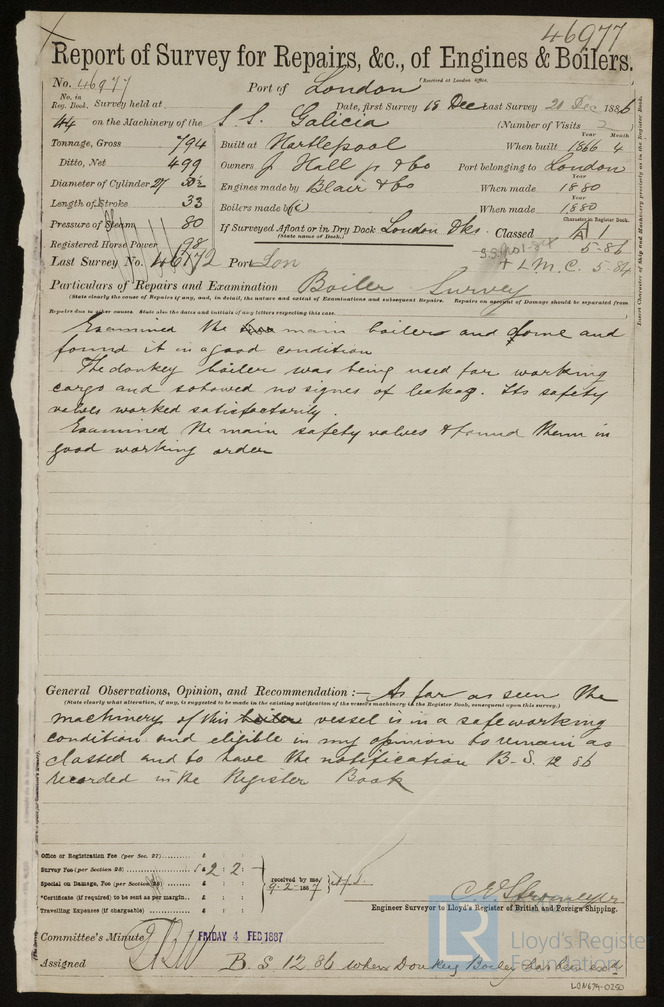 46977
Report of Survey for Repairs, &c., of Engines & Boilers.
(Received at London Office.
No. 46977 Port of London
No. in Reg. Book. Survey held at Date, first Survey 18 Dec Last Survey 20 Dec 1886
44 on the Machinery of the S.S. Galicia (Number of Visits 2
Tonnage, Gross 794 Built at Hartlepool When built 1866 4
Year Month
Ditto, Net 499 Owners J Hall jr & Co Port belonging to London
Diameter of Cylinder 27 50½ Engines made by Blair & Co When made 1880
Year
Length of Stroke 33 Boilers made by When made 1880
Year
Pressure of Steam 80 If Surveyed Afloat or in Dry Dock London Dks Classed A 1
(State name of Dock.)
Character in Register Book.
Registered Horse Power 98 5-86
Last Survey No. 46172 Port Lon + L.M.C. 5-84
Particulars of Repairs and Examination Boiler Survey
(State clearly the cause of Repairs if any, and, in detail, the nature and extent of Examinations and subsequent Repairs. Repairs on account of Damage should be separated from
Repairs due to other causes. State also the dates and initials of any letters respecting this case.
Examined the main boilers and dome and
found it in a good condition
The donkey boiler was being used for working
cargo and sohowed no signes of leakag. Its safety
valves worked satisfactorily.
Examined the main safety valves & found them in
good working order
Insert Character of Ship and Machinery precisely as in the Register Book.
General Observations, Opinion, and Recommendation :— As far as seen the
(State clearly what alteration, if any, is suggested to be made in the existing notification of the vessel's machinery in the Register Book, consequent upon this survey.)
machinery of this boiler vessel is in a safe working
condition and eligible in my opinion to remain as
classed and to have the notification B.S. 12 86
recorded in the Register Book
Office or Registration Fee (per Sec. 27) £ : :
Survey Fee (per Section 28) £ 2 : 2 :
Special on Damage, Fee (per Section 28) £ : :
*Certificate (if required) to be sent as per margin £ : :
Travelling Expenses (if chargeable) £ : :
received by me,
9.2.1887
Engineer Surveyor to Lloyd's Register of British and Foreign Shipping.
Committee's Minute FRIDAY 4 FEB 1887
Assigned B.S 12 86 when Donkey Boiler
LR
Lloyd's Register
Foundation
LON679-0250